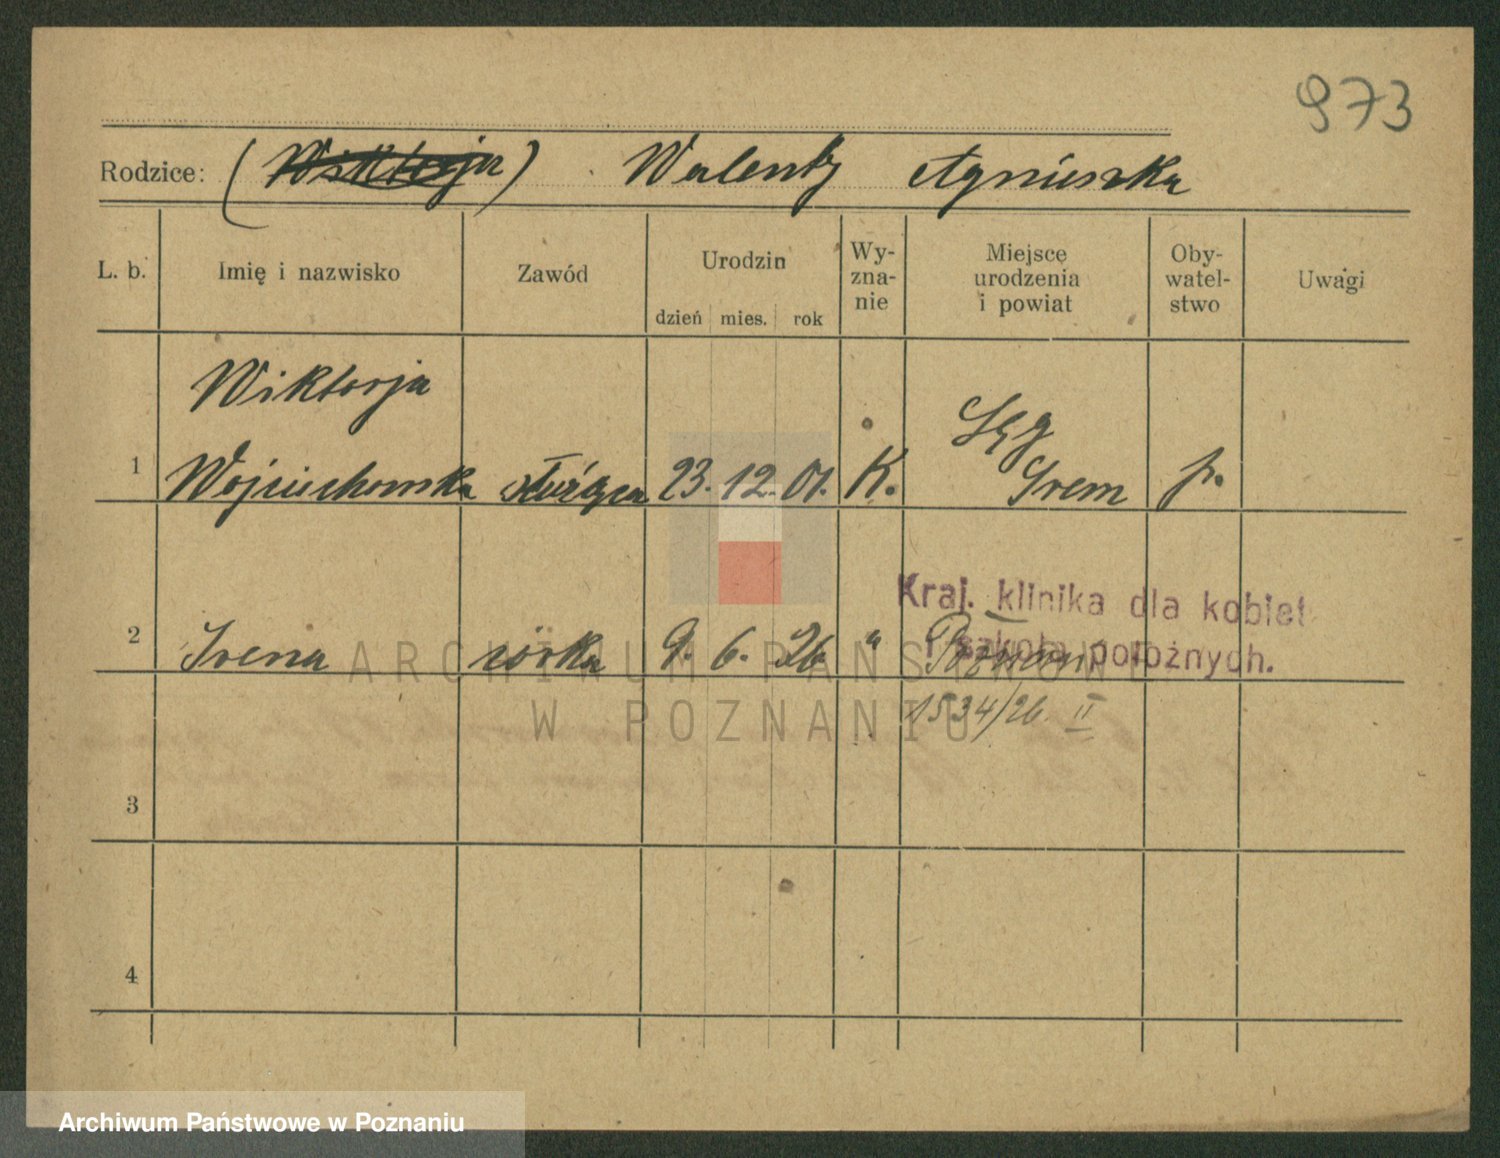 973
Rodzice: (Wiktorja) Walenty Agnieszka
L. b. Imię i nazwisko Zawód Urodzin dzień mies. rok Wy-zna-nie Miejsce urodzenia i powiat Oby-watel-stwo Uwagi
Wiktorja
1 Wojciechowska służąca 23. 12. 01. K. Łęg Śrem p.
Kraj. klinika dla kobiet
i szkoła położnych.
2 Irena córka 9. 6. 26. " Poznań
1534/26. II
3
4
ARCHIWUM PAŃSTWOWE
W POZNANIU
Archiwum Państwowe w Poznaniu